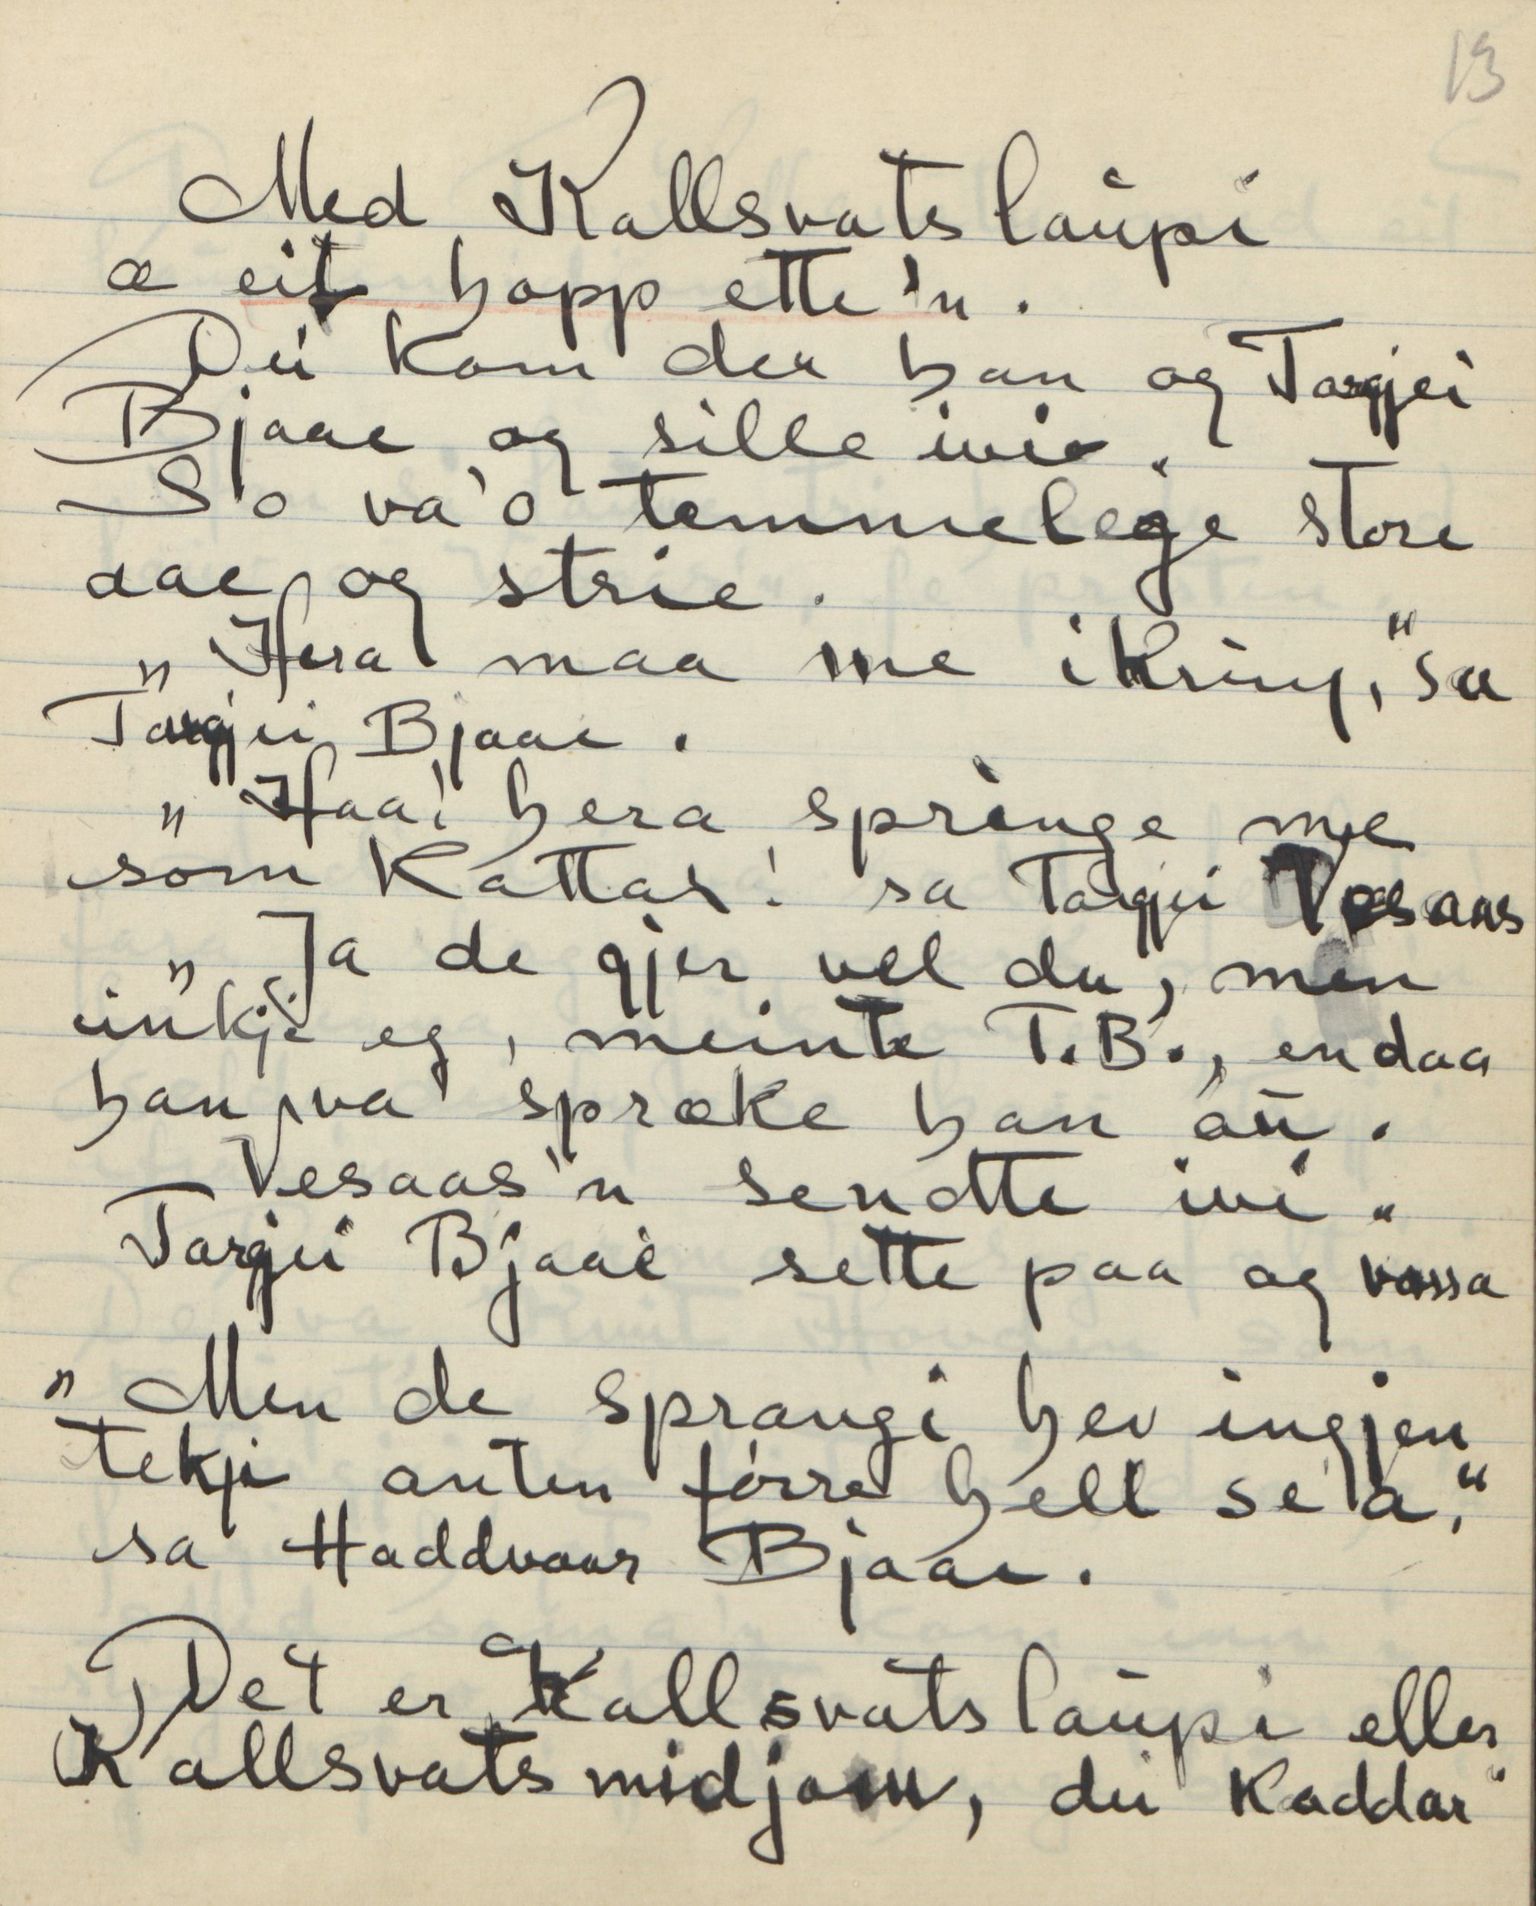 13
Med Kallsvatslaupi
æ eit hopp ette'n.
Dei kom der han og Targjei
Bjaae og sille ivi.
So va'o temmelege store
aae og strie.
„Hera maa me ikring," sa
Targjei Bjaae.
„Haa! hera springe me
som Kattar! sa Targjei Vesaas
„Ja de gjer vel du, men
inkje eg, meinte T.B., endaa
han va spræke han au.
Vesaas'n sendte ivi.
Targjei Bjaae sette paa og vassa
„Men de sprangi hev ingjen
tekji anten førre hell se'a,"
sa Haddvaar Bjaae.
Det er Kallsvatslaupi eller
Kallsvatsmidjom, dei Kaddar'